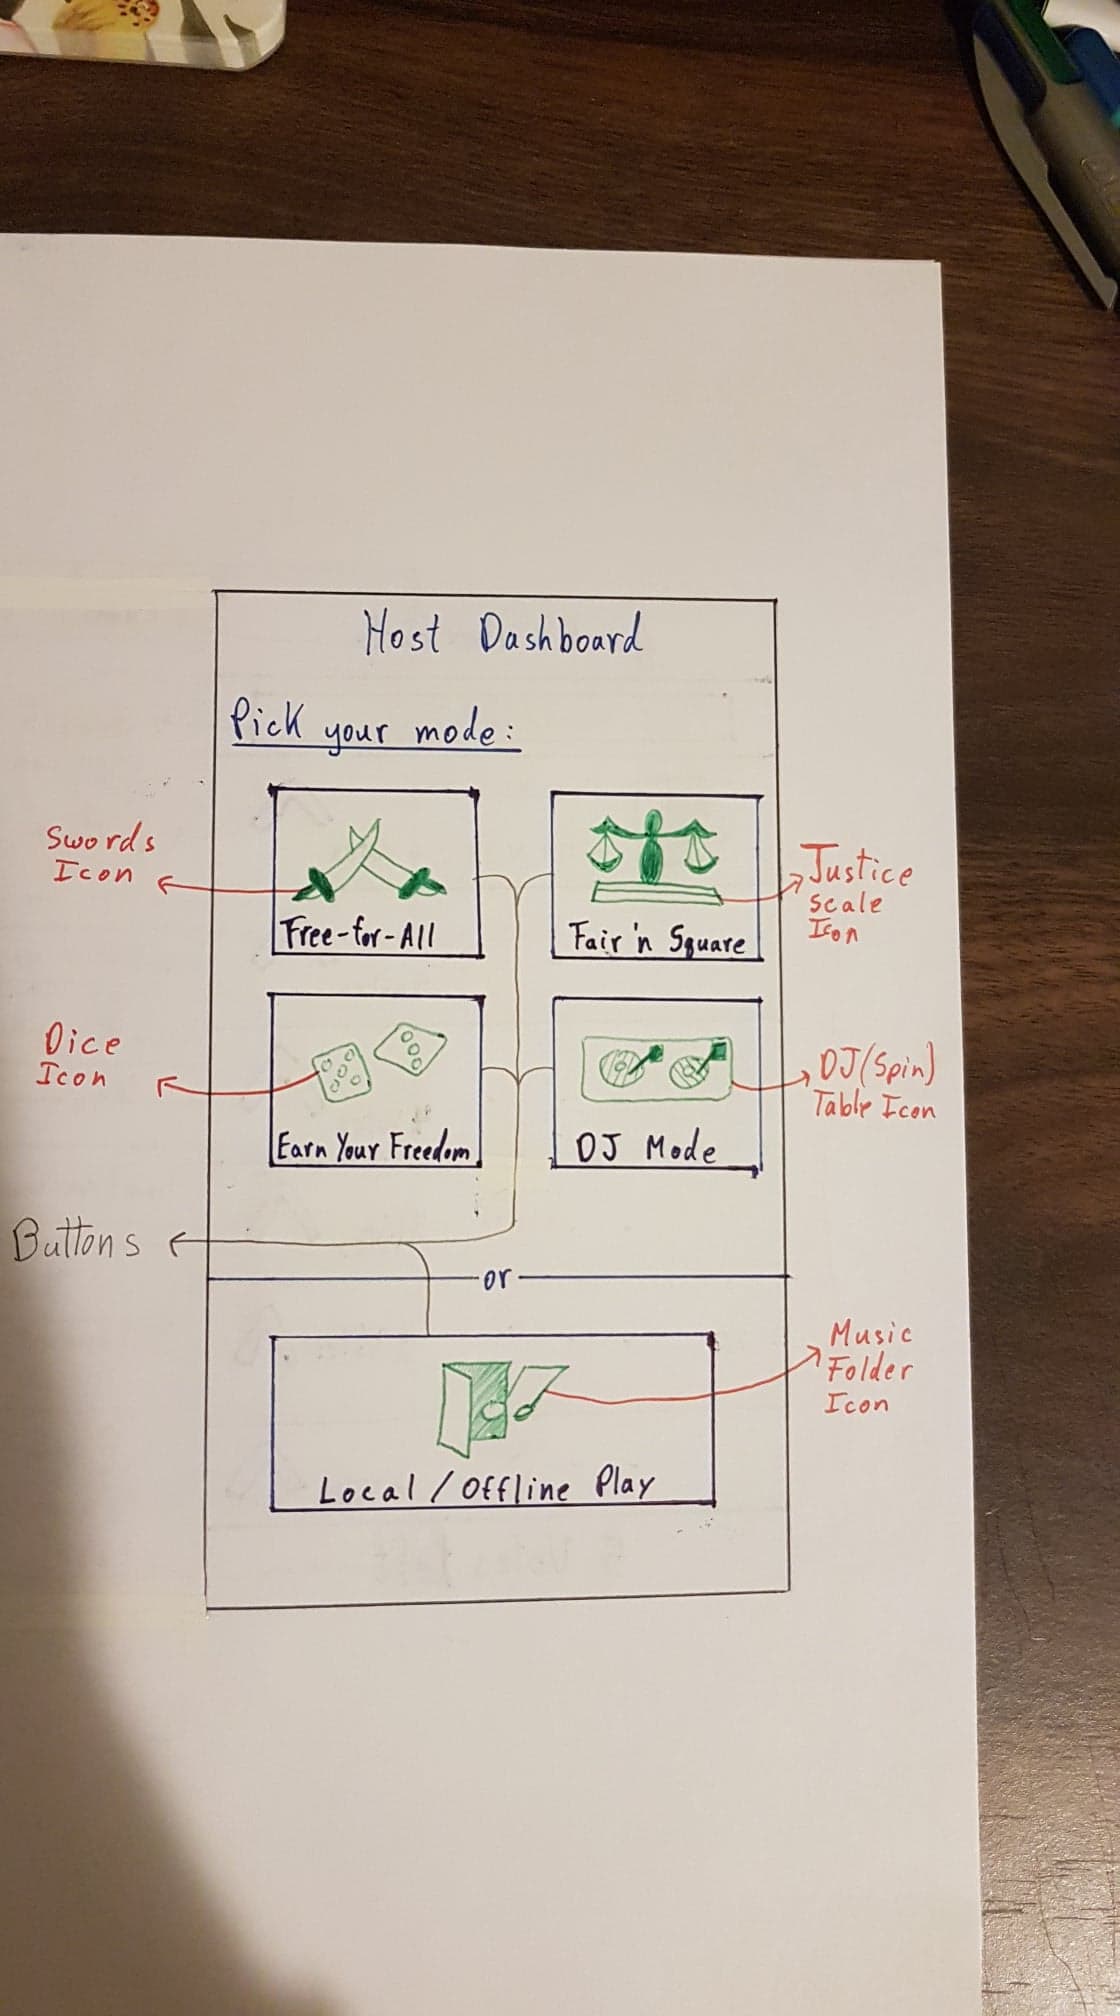 Host Dashboard
Pick your mode:
Swords
Icon
Free-for-All
Fair 'n Square
Justice
Scale
Icon
Dice
Icon
Earn Your Freedom
DJ Mode
DJ(Spin)
Table Icon
Buttons
or
Music
Folder
Icon
Local / Offline Play